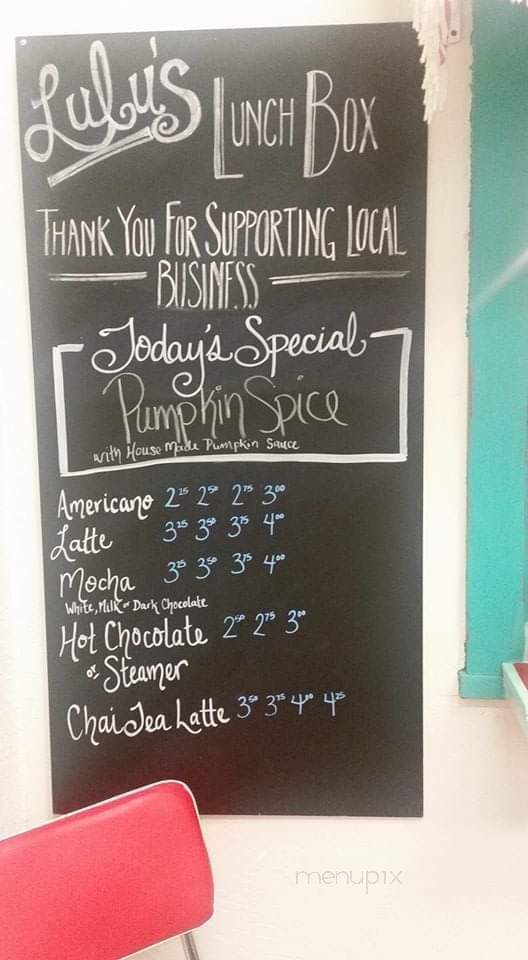 Lulu's Lunch Box
Thank You For Supporting Local
Business
Today's Special
Pumpkin Spice
with House Made Pumpkin Sauce
Americano 2²⁵ 2⁵⁰ 2⁷⁵ 3⁰⁰
Latte 3²⁵ 3⁵⁰ 3⁷⁵ 4⁰⁰
Mocha 3²⁵ 3⁵⁰ 3⁷⁵ 4⁰⁰
White, Milk or Dark Chocolate
Hot Chocolate 2⁵⁰ 2⁷⁵ 3⁰⁰
or Steamer
Chai Tea Latte 3⁵⁰ 3⁷⁵ 4⁰⁰ 4²⁵
menupix